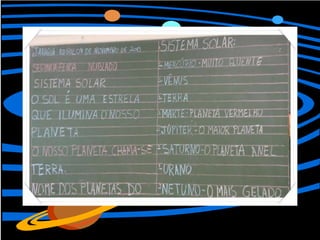 SEGUNDA-FEIRA NUBLADO
SISTEMA SOLAR
O SOL É UMA ESTRELA
QUE ILUMINA O NOSSO
PLANETA
O NOSSO PLANETA CHAMA-SE
TERRA.
NOME DOS PLANETAS DO
SISTEMA SOLAR:
MERCÚRIO-MUITO QUENTE
VÊNUS
TERRA
MARTE-PLANETA VERMELHO
JÚPITER-O MAIOR PLANETA
SATURNO-O PLANETA ANEL
URANO
NETUNO-O MAIS GELADO